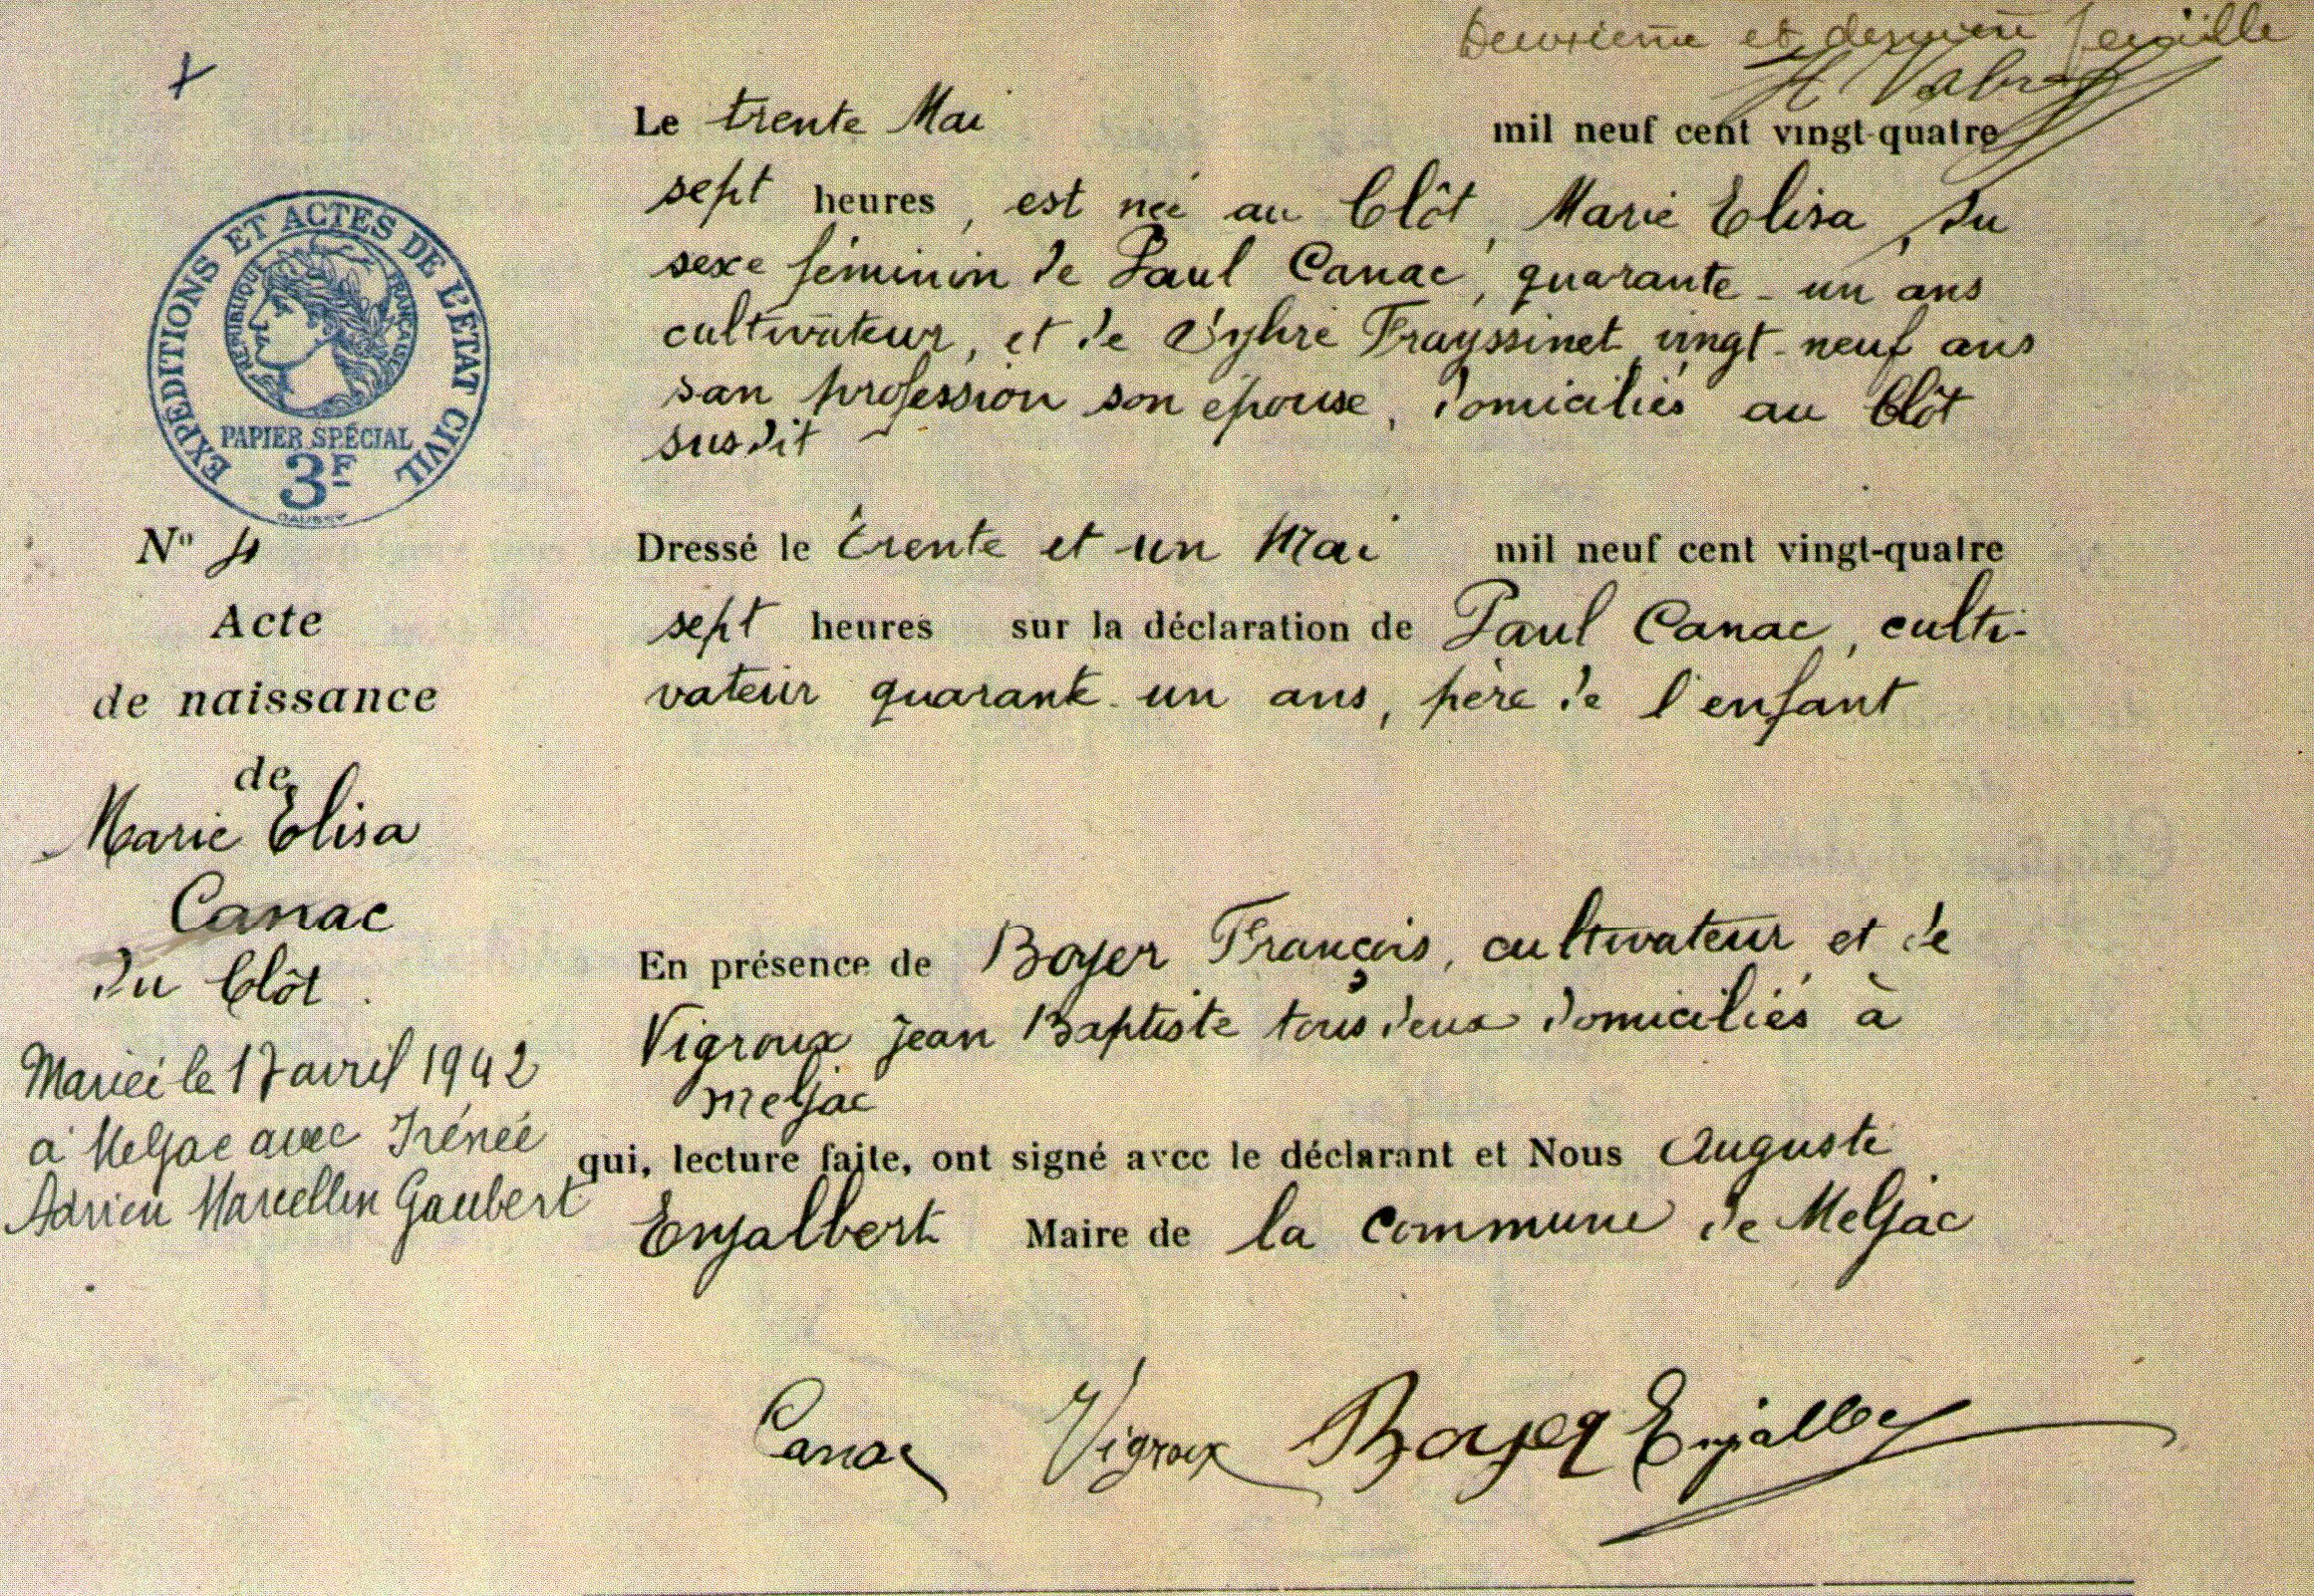 Deuxième et dernière feuille
Le trente Mai mil neuf cent vingt-quatre
sept heures, est née au Clôt, Marie Elisa, du
sexe féminin de Paul Canac, quarante-un ans
cultivateur, et de Sylvie Frayssinet, vingt-neuf ans
san profession son épouse, domiciliés au Clôt
susdit
EXPÉDITIONS ET ACTES DE L'ÉTAT CIVIL
RÉPUBLIQUE FRANÇAISE
PAPIER SPÉCIAL
3F
No 4
Acte
de naissance
de
Marie Elisa
Canac
du Clôt.
Mariée le 17 avril 1942
à Meljac avec Irénée
Adrien Marcellin Gaubert
Dressé le trente et un Mai mil neuf cent vingt-quatre
sept heures sur la déclaration de Paul Canac, culti-
vateur quarante-un ans, père de l'enfant
En présence de Boyer François, cultivateur et de
Vigroux Jean Baptiste tous deux domiciliés à
Meljac
qui, lecture faite, ont signé avec le déclarant et Nous Auguste
Enjalbert Maire de la commune de Meljac
Canac Vigroux Boyer Enjalbert